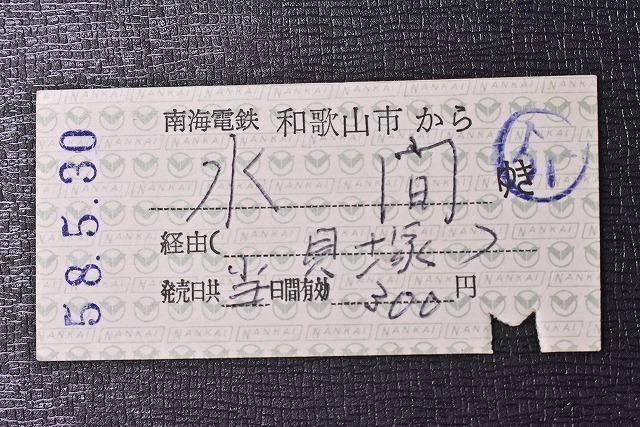 南海電鉄 和歌山市 から
水間 ゆき
経由(貝塚)
発売日共 当 日間有効 300 円
58.5.30
NANKAI